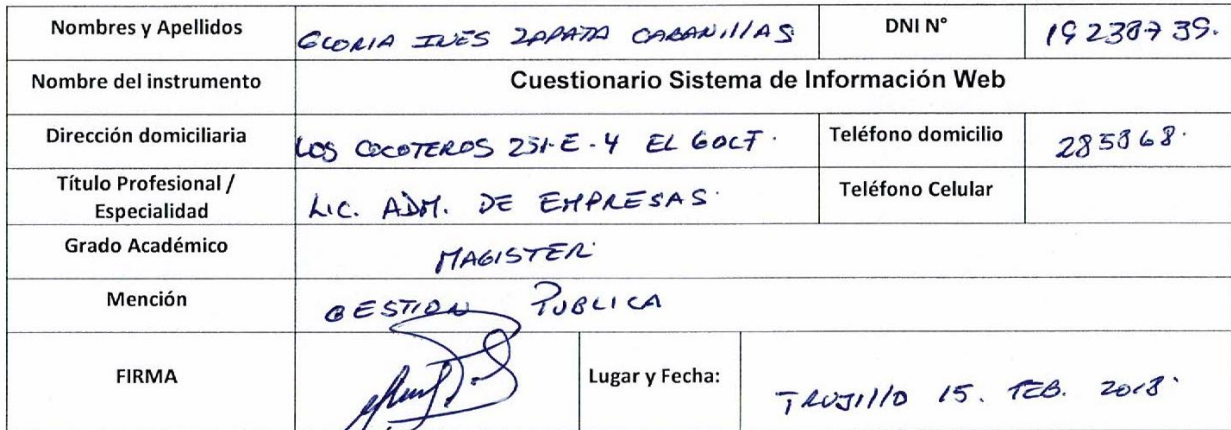 Nombres y Apellidos GLORIA INES ZAPATA CABANIllAS DNI N° 19238739.
Nombre del instrumento Cuestionario Sistema de Información Web
Dirección domiciliaria LOS COCOTEROS 251-E-4 EL GOLF. Teléfono domicilio 285868.
Título Profesional / Especialidad LIC. ADM. DE EMPRESAS. Teléfono Celular
Grado Académico MAGISTER
Mención GESTION PUBLICA
FIRMA Lugar y Fecha: TRUJIllO 15. FEB. 2018.